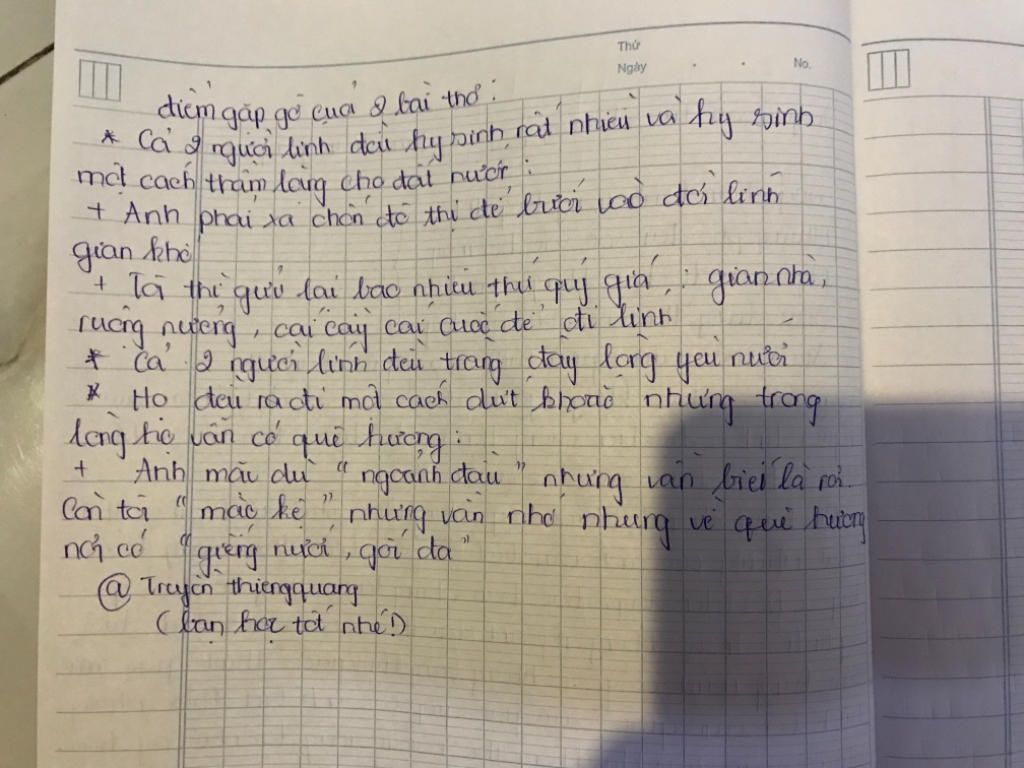 Thứ
Ngày . . No.
điểm gặp gỡ của 2 bài thơ :
* Cả 2 người lính đều hy sinh rất nhiều và hy sinh
một cách thầm lặng cho đất nước :
+ Anh phải xa chốn đô thị để bước vào đời lính
gian khổ
+ Tôi thì gửi lại bao nhiêu thứ quý giá : gian nhà,
ruộng nương, cái cày cái cuốc để đi lính
* Cả 2 người lính đều tràng đầy lòng yêu nước
* Họ đều ra đi một cách dứt khoác nhưng trong
lòng họ vẫn có quê hương :
+ Anh mặc dù " ngoảnh đầu " nhưng vẫn biết là rơi.
Còn tôi " mặc kệ " nhưng vẫn nhớ nhung về quê hương
nơi có " giếng nước, gốc đa "
@ Truyền thiengquang
( bạn học tốt nhé!)